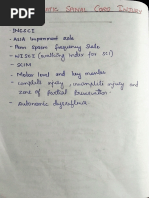 INISCI
- ASIA Impairment Scale
- Penn Spasm frequency Scale
- WISCI (walking index for SCI)
- SCIM
- Motor level and key muscles
- complete injury, incomplete injury and
zone of Partial Preservation
- autonomic dysreflexia.